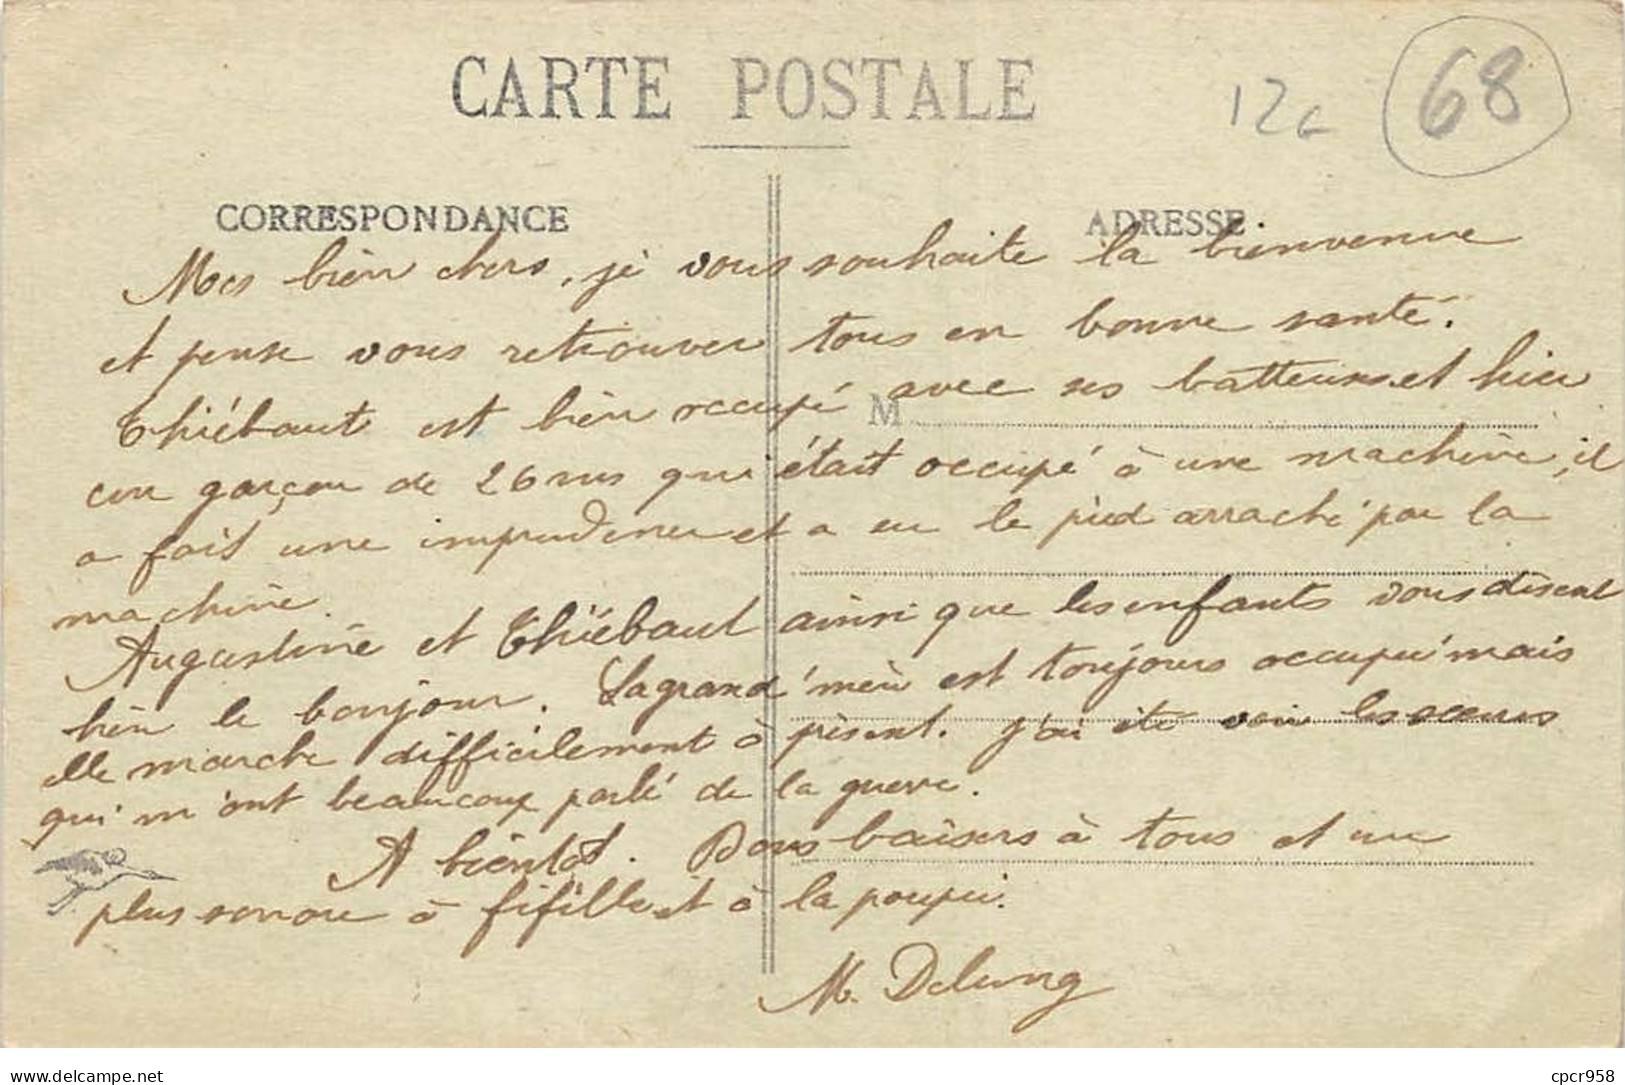 CARTE POSTALE
12€
68
CORRESPONDANCE
ADRESSE
Mes bien chers, je vous souhaite la bienvenue
et pense vous retrouver tous en bonne santé.
M
Thiébaut est bien occupé avec ses batteuses et hier
un garçon de 26 ans qui était occupé à une machine, il
a fait une imprudence et a eu le pied arraché par la
machine.
Augustine et Thiébaut ainsi que les enfants vous disent
bien le bonjour. La grand'mère est toujours occupée mais
elle marche difficilement à présent. J'ai été voir les soeurs
qui m'ont beaucoup parlé de la guerre.
A bientôt. Bons baisers à tous et un
plus sonore à fifille et à la poupée.
M. Delung
www.delcampe.net
cpcr958